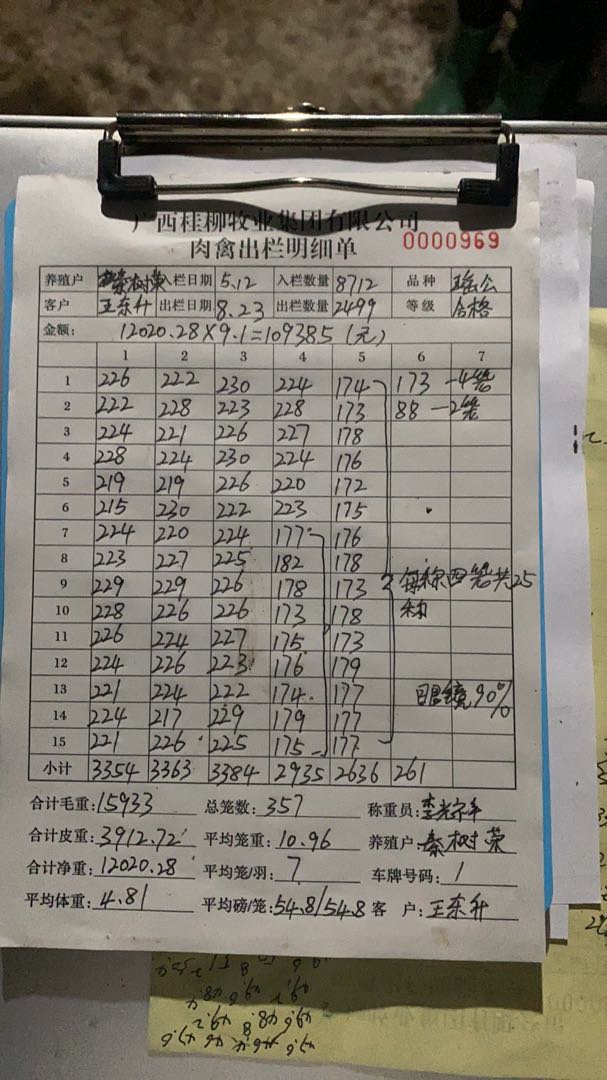 广西桂柳牧业集团有限公司
肉禽出栏明细单 0000969
养殖户 秦树荣 入栏日期 5.12 入栏数量 8712 品种 瑶公
客户 王东升 出栏日期 8.23 出栏数量 2499 等级 合格
金额: 12020.28×9.1=109385(元)
1 2 3 4 5 6 7
1 226 222 230 224 174 173 -4笼
2 222 228 223 228 173 88 -2笼
3 224 221 226 227 178
4 228 224 230 224 176
5 219 219 226 220 172
6 215 230 222 223 175
7 224 220 224 177 176
8 223 227 225 182 178
9 229 229 226 178 173 每称四笼共25
10 228 226 226 173 178 称
11 226 224 227 175 173
12 224 226 223 176 179
13 221 224 222 174 177 眼镜90%
14 224 217 229 179 177
15 221 226 225 175 177
小计 3354 3363 3384 2935 2636 261
合计毛重: 15933 总笼数: 357 称重员:
合计皮重: 3912.72 平均笼重: 10.96 养殖户: 秦树荣
合计净重: 12020.28 平均笼/羽: 7 车牌号码: 1
平均体重: 4.81 平均磅/笼: 54.8/54.8 客 户: 王东升